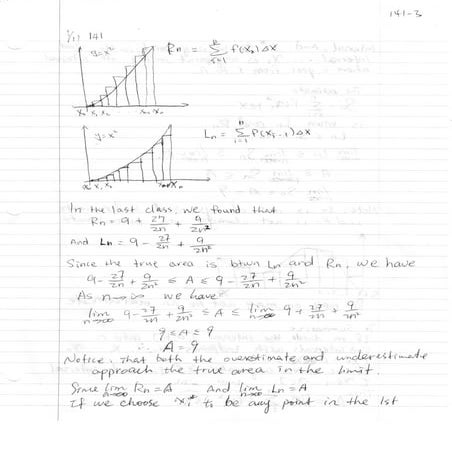 141-3
1/11 141
y=x² Rn = Σ f(xi) Δx
i=1
x0 x1 x2
y=x² Ln = Σ f(xi-1) Δx
i=1
In the last class, we found that
Rn = 9 + 27/2n + 9/2n²
And Ln = 9 - 27/2n + 9/2n²
Since the true area is btwn Ln and Rn, we have
9 - 27/2n + 9/2n² ≤ A ≤ 9 - 27/2n + 9/2n²
As n→∞ we have
lim n→∞ 9 - 27/2n + 9/2n² ≤ A ≤ lim n→∞ 9 + 27/2n + 9/2n²
9 ≤ A ≤ 9
∴ A = 9
Notice that both the overestimate and underestimate
approach the true area in the limit.
Since lim n→∞ Rn = A And lim n→∞ Ln = A
If we choose xi* to be any point in the 1st